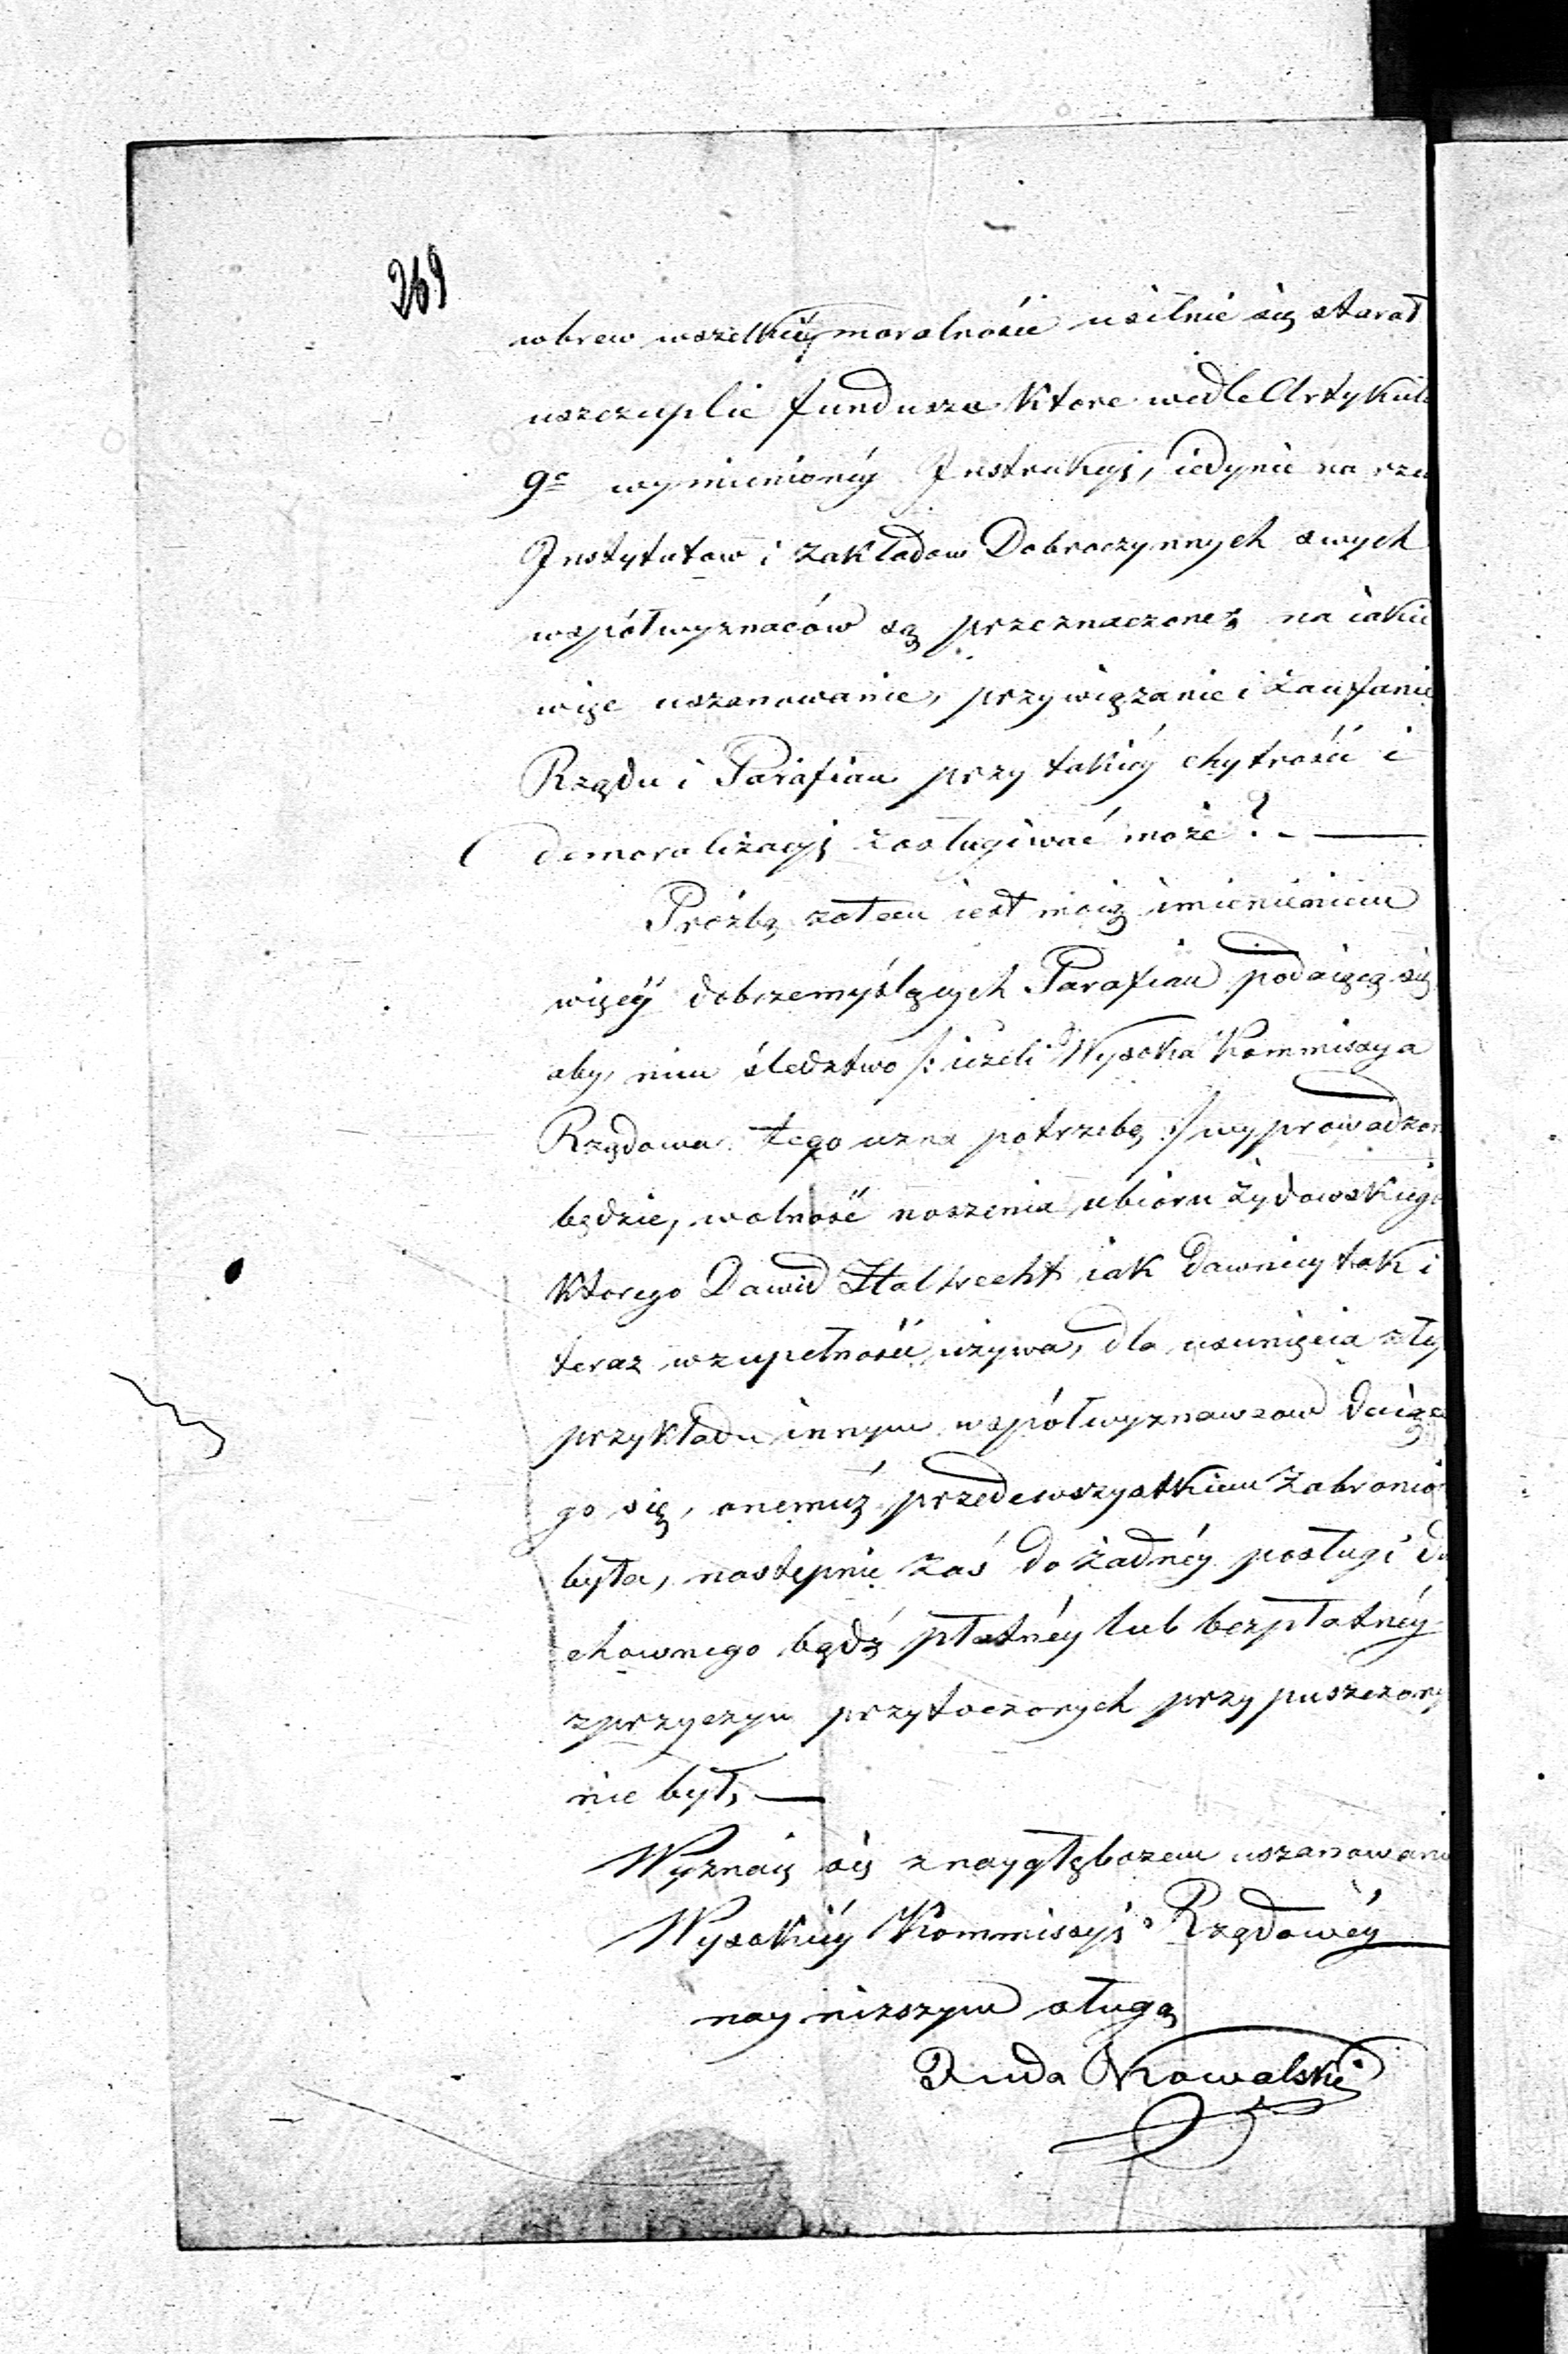 269
wbrew wszelkiéy moralności usilnie się starał
uszczuplić fundusze ktore wedle Artykuł
9º wymienionéy Instrukcyi, iedynie na rze
Instytutow i zakładow Dobroczynnych swych
współwyznaców są przeznaczone; na iakie
więc uszanowanie, przywiązanie i zaufanie
Rządu i Parafian przy takiéy chytrości i
demoralizacyi zasługiwać może? —
Proźbą zatem iest moią imieniem
więcéy dobrzemyślących Parafian podaiącą się
aby, nim śledztwo /: ieżeli Wysoka Kommissya
Rządowa tego uzna potrzebę :/ wyprowadzon
będzie, wolność noszenia ubioru żydowskiego
ktorego Dawid Halbrecht iak dawniey tak i
teraz wzupełności używa, dla usunięcia złe
przykładu innym współwyznawcow daiące
go się, onemuż przedewszystkiem zabronio
była, następnie zaś do żadnéy posługi du
chownego bądź płatnéy lub bezpłatnéy
zprzyczyn przytoczonych przypuszczony
nie był, —
Wyznaię się znaygłębszem uszanowani
Wysokiéy Kommissyi Rządowéy
nayniższym sługą
Juda Kowalski